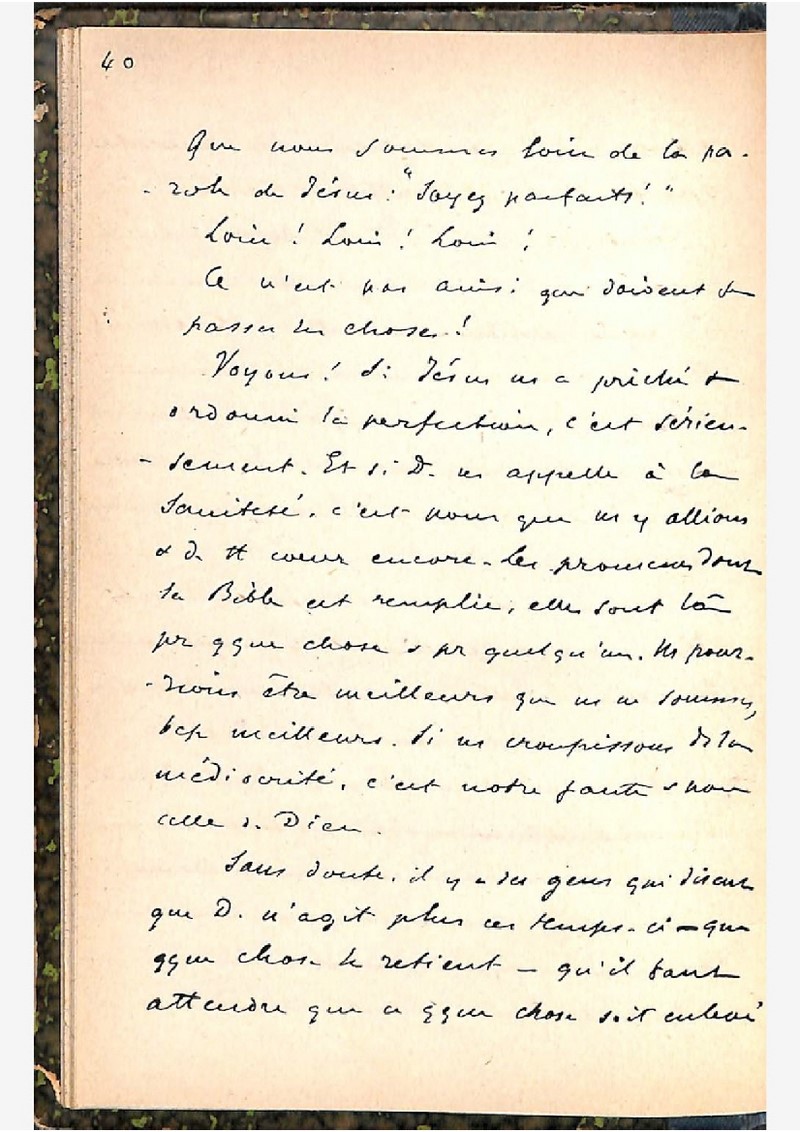 40
Que nous sommes loin de la pa-
-role de Jésus : "Soyez parfaits ! "
Loin ! Loin ! Loin !
Ce n'est pas ainsi que doivent se
passer les choses !
Voyons ! Si Jésus ns a prêché &
ordonné la perfection, c'est sérieu-
-sement. Et si D. ns appelle à la
Sainteté, c'est pour que ns y allions
& de tt coeur encore. Les promesses dont
la Bible est remplie, elles sont là
pr qque chose & pr quelqu'un. Ns pour-
-rions être meilleurs que ns ne sommes,
bcp meilleurs. Si ns croupissons ds la
médiocrité, c'est notre faute & non
celle de Dieu.
Sans doute, il y a des gens qui disent
que D. n'agit plus ces temps-ci — que
qque chose le retient — qu'il faut
attendre que ce qque chose soit enlevé